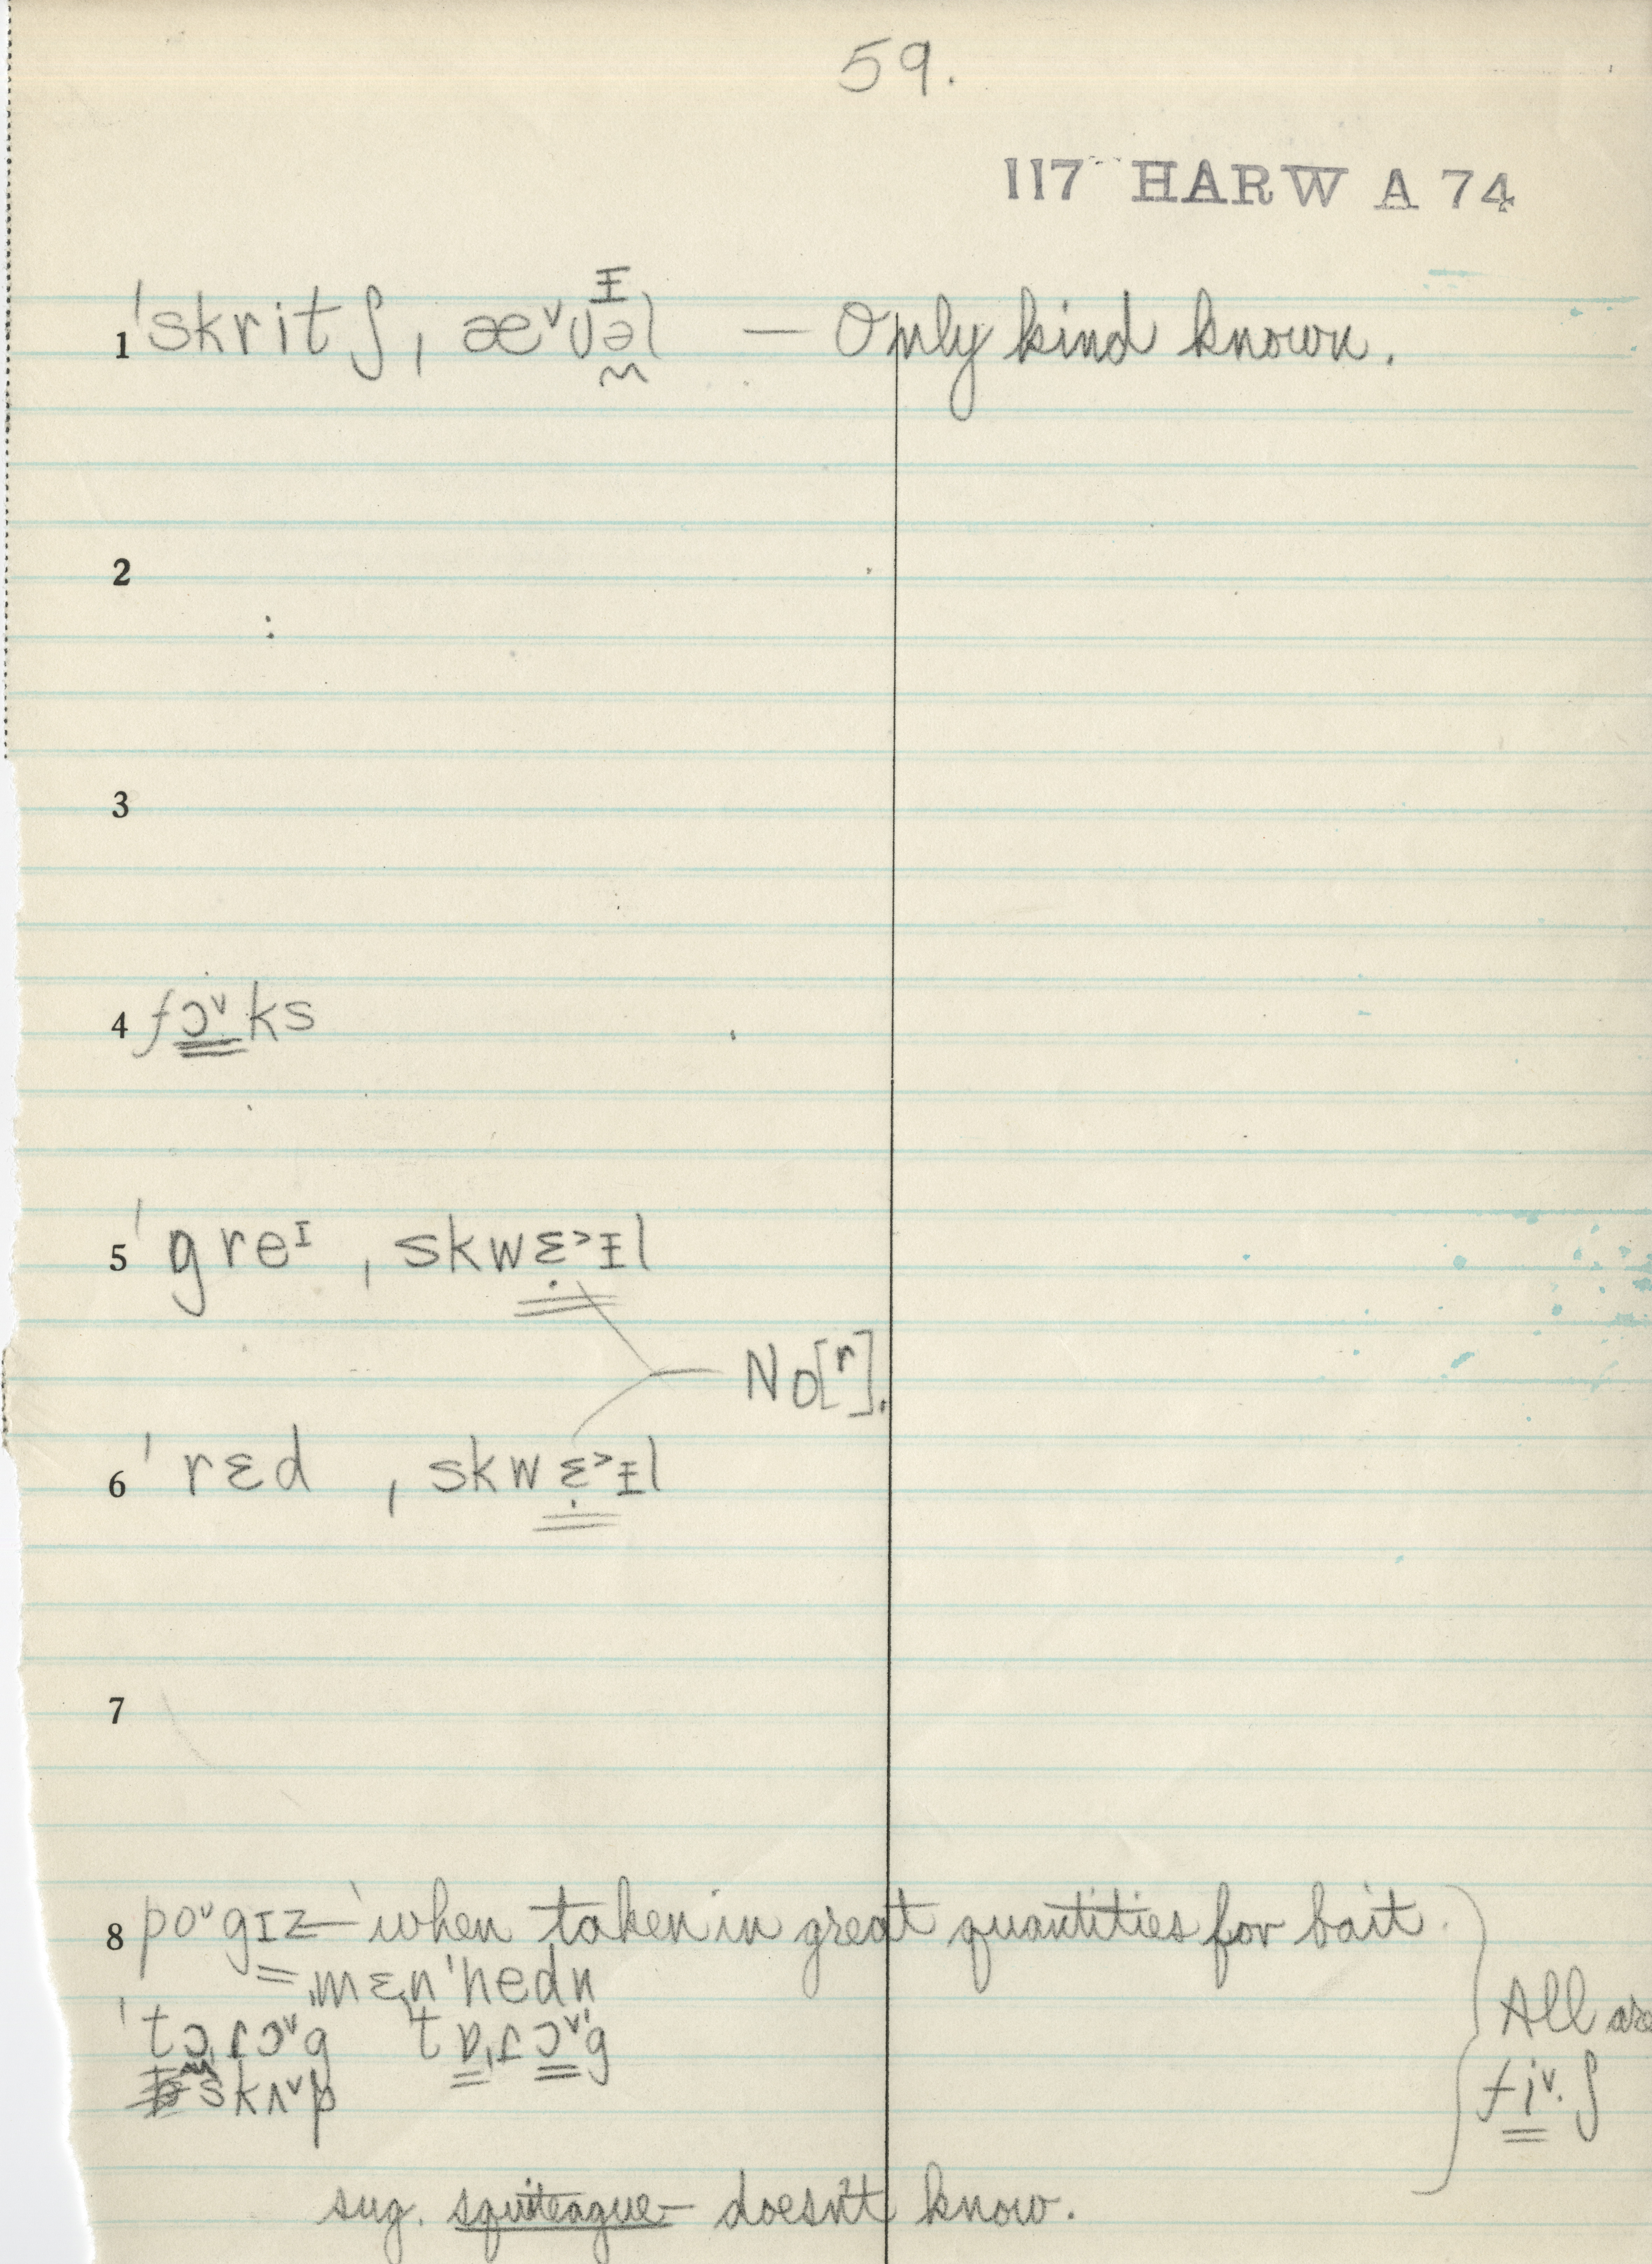 59.
117 HARW A 74
1 ˈskritʃ ˌæ˅ʊəl — Only kind known.
2
3
4 fɔ˅ks
5 ˈgreᴵ ˌskwɛ˃ᵻl
No [r].
6 ˈrɛd ˌskwɛ˃ᵻl
7
8 po˅gɪz — when taken in great quantities for bait.
= ˌmɛnˈhedn
All are
fi˅·ʃ
skʌ˅p
sug. squiteague — doesn't know.